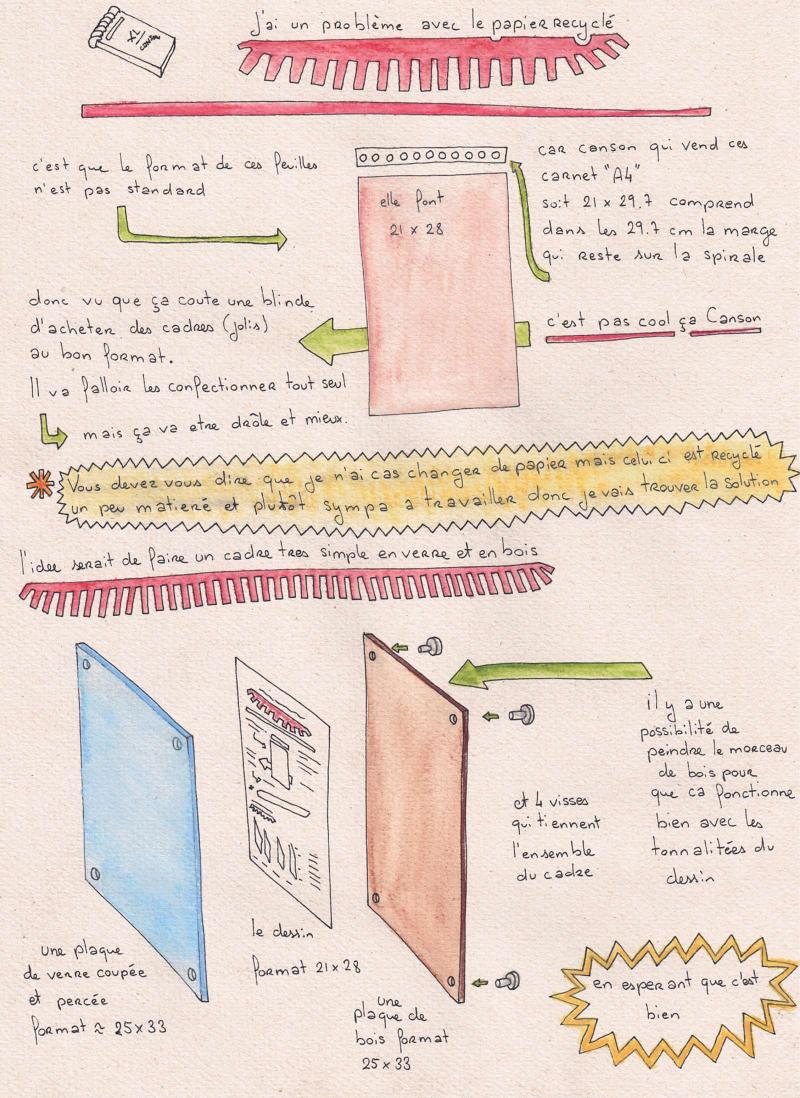 j'ai un problème avec le papier recyclé
XL
CANSON
c'est que le format de ces feuilles
n'est pas standard
elle font
21 x 28
car canson qui vend ces
carnet "A4"
soit 21 x 29.7 comprend
dans les 29.7 cm la marge
qui reste sur la spirale
c'est pas cool ça Canson
donc vu que ça coute une blinde
d'acheter des cadres (jolis)
au bon format.
Il va falloir les confectionner tout seul
mais ça va etre drôle et mieux.
Vous devez vous dire que je n'ai cas changer de papier mais celui.ci est recyclé
un peu matieré et plutôt sympa a travailler donc je vais trouver la solution
l'idee serait de faire un cadre tres simple en verre et en bois
il y a une
possibilité de
peindre le morceau
de bois pour
que ca fonctionne
bien avec les
tonnalitées du
dessin
et 4 visses
qui tiennent
l'ensemble
du cadre
une plaque
de verre coupée
et percée
format ≈ 25x33
le dessin
format 21x28
une
plaque de
bois format
25x33
en esperant que c'est
bien